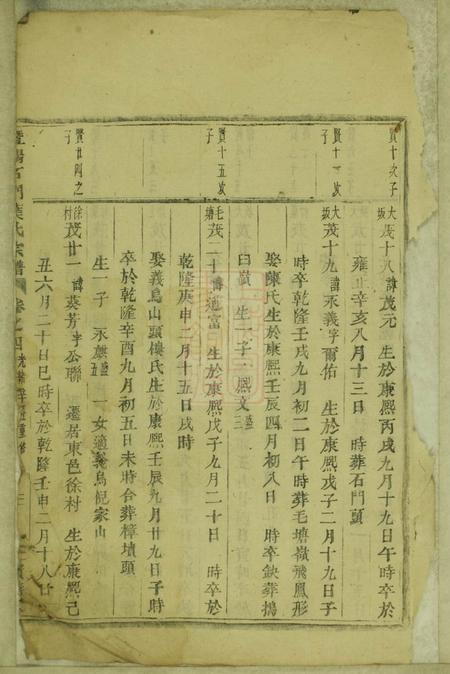 賢十次子
大坂 茂十八 諱茂元 生於康熙丙戌九月十九日午時卒於
雍正辛亥八月十三日 時葬石門頭
賢十一次子
大坂 茂十九 諱永義字爾佑 生於康熙戊子二月十九日子
時卒乾隆壬戌九月初二日午時葬毛塘嶺飛鳳形
娶陳氏生於康熙壬辰四月初八日 時卒缺葬搗
臼嶺 生一子 熙文 盛三
賢十五次子
毛塘 茂二十 諱適富 生於康熙戊子九月二十日 時卒於
乾隆庚申二月十五日戌時
娶義烏山頭樓氏生於康熙壬辰九月廿九日子時
卒於乾隆辛酉九月初五日未時合葬樟墳頭
生一子 永麒 一女適義烏倪家山
賢廿四之子
徐村 茂廿一 諱葵芳字公聯 遷居東邑徐村 生於康熙己
丑六月二十日巳時卒於乾隆壬申二月十八日
暨陽石門葉氏宗譜 卷之四